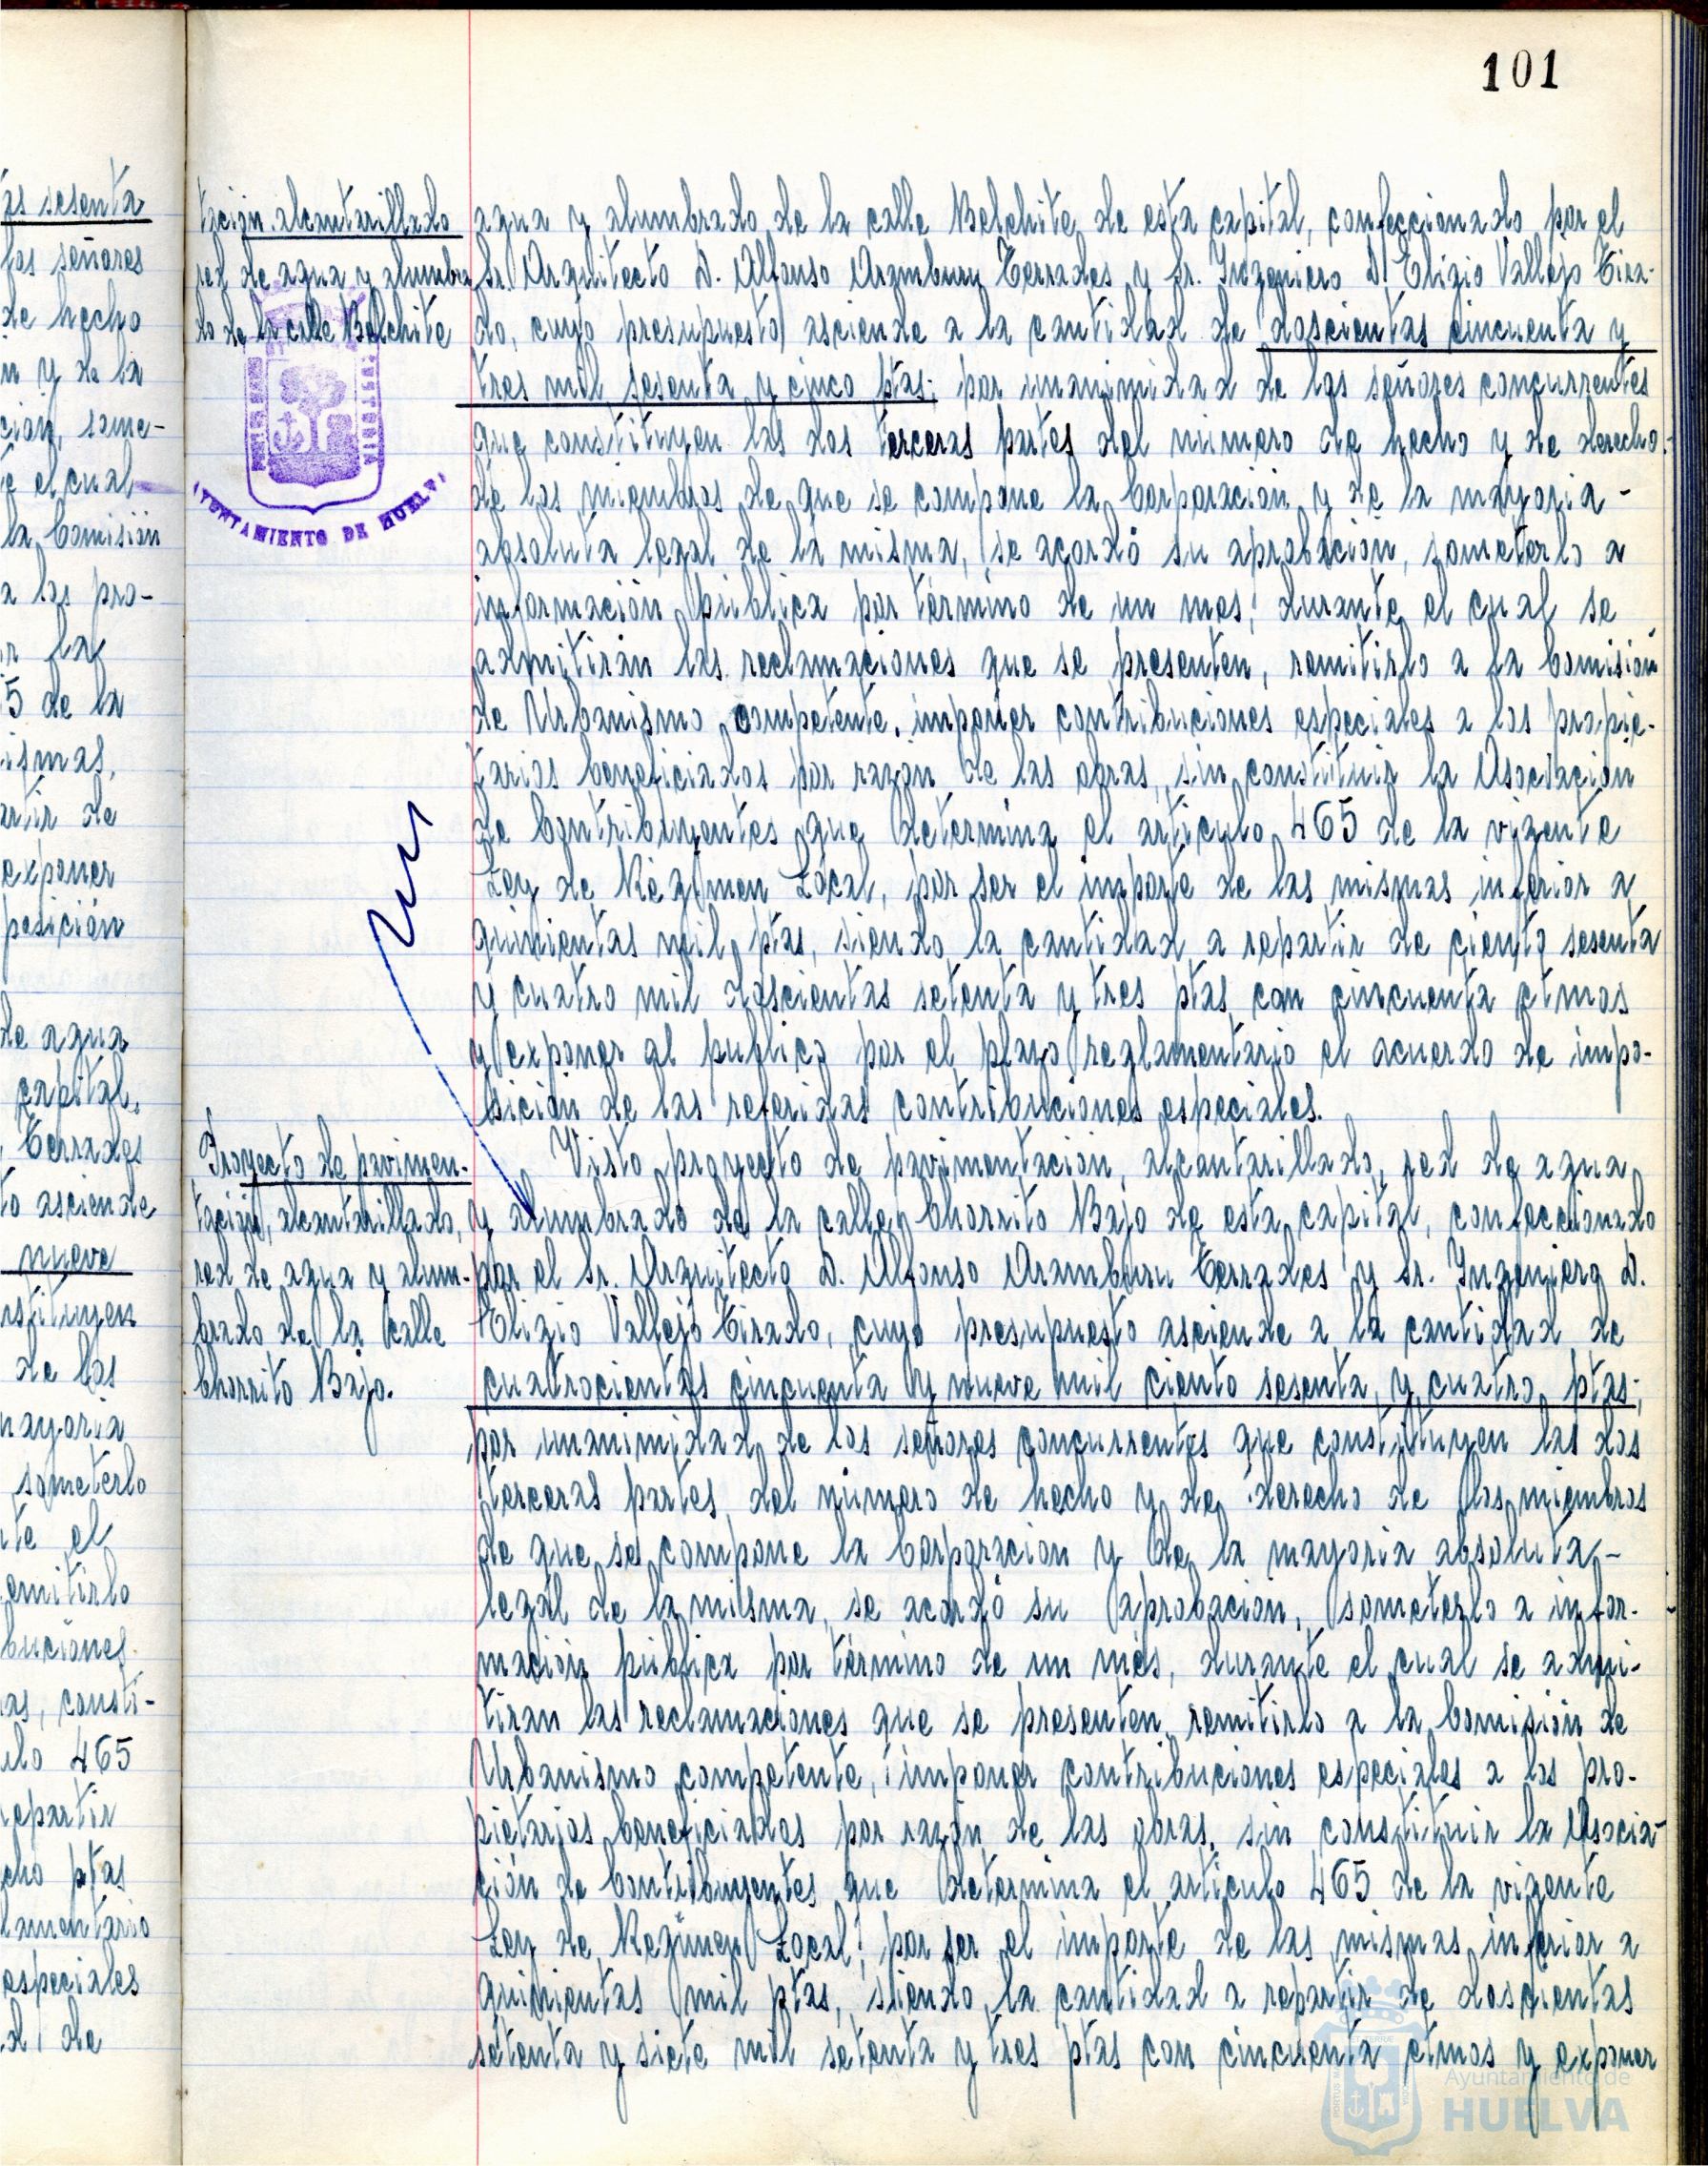 101
tación, alcantarillado
red de agua y alumbra
do de la calle Belchite
AYUNTAMIENTO DE HUELVA
agua y alumbrado de la calle Belchite de esta capital, confeccionado por el
Sr. Arquitecto D. Alfonso Aramburu Terrades y Sr. Ingeniero D. Eligio Vallejo Tira-
do, cuyo presupuesto asciende a la cantidad de doscientas cincuenta y
tres mil sesenta y cinco ptas; por unanimidad de los señores concurrentes
que constituyen las dos terceras partes del número de hecho y de derecho-
de los miembros de que se compone la Corporación y de la mayoria -
absoluta legal de la misma, se acordó su aprobación, someterlo a
información pública por término de un mes, durante el cual se
admitirán las reclamaciones que se presenten, remitirlo a la Comisión
de Urbanismo competente, imponer contribuciones especiales a los propie-
tarios beneficiados por razon de las obras, sin constituir la Asociación
de Contribuyentes que determina el articulo 465 de la vigente
Ley de Régimen Local, por ser el importe de las mismas inferior a
quinientas mil ptas, siendo la cantidad a repartir de ciento sesenta
y cuatro mil doscientas setenta y tres ptas con cincuenta ctmos
y exponer al publico por el plazo reglamentario el acuerdo de impo-
sición de las referidas contribuciones especiales.
Proyecto de pavimen-
tación, alcantarillado,
red de agua y alum-
brado de la calle
Chorrito Bajo.
Visto proyecto de pavimentación, alcantarillado, red de agua
y alumbrado de la calle Chorrito Bajo de esta capital, confeccionado
por el Sr. Arquitecto D. Alfonso Aramburu Terrades y Sr. Ingeniero D.
Eligio Vallejo Tirado, cuyo presupuesto asciende a la cantidad de
cuatrocientas cincuenta y nueve mil ciento sesenta y cuatro ptas;
por unanimidad de los señores concurrentes que constituyen las dos
terceras partes del número de hecho y de derecho de los miembros
de que se compone la Corporación y de la mayoria absoluta -
legal de la misma, se acordó su aprobación, someterlo a infor-
mación pública por término de un mes, durante el cual se admi-
tiran las reclamaciones que se presenten, remitirlo a la Comisión de
Urbanismo competente, imponer contribuciones especiales a los pro-
pietarios beneficiados por razón de las obras, sin constituir la Asocia-
ción de Contribuyentes que determina el articulo 465 de la vigente
Ley de Regimen Local, por ser el importe de las mismas inferior a
quinientas mil ptas, siendo la cantidad a repartir de doscientas
setenta y siete mil setenta y tres ptas con cincuenta ctmos y exponer
Ayuntamiento de
HUELVA